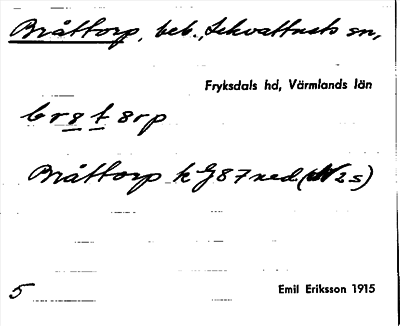 Bråttorp, beb., Lekvattnets sn,
Fryksdals hd, Värmlands län
br8t8rp
Bråttorp k G87 ned. (N2s)
5
Emil Eriksson 1915